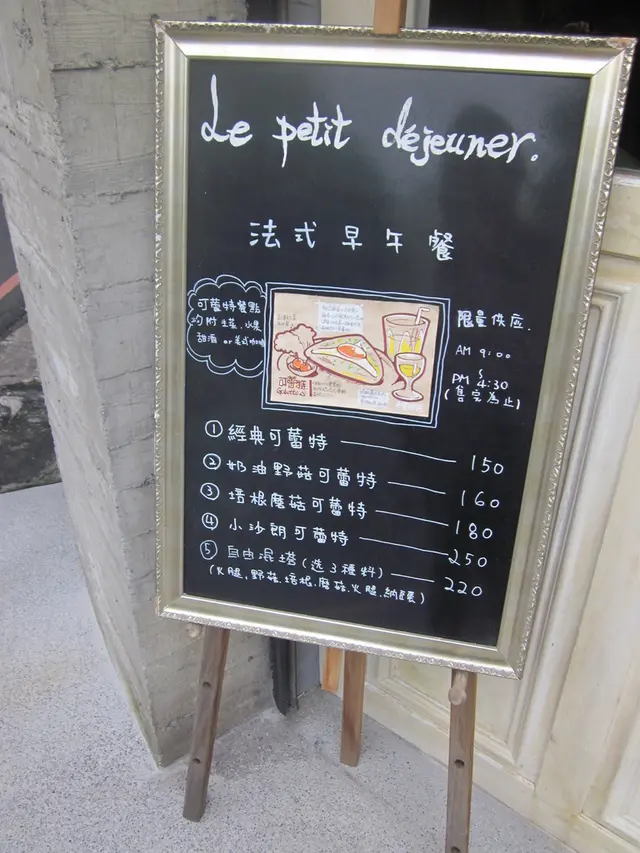 Le petit déjeuner.
法式早午餐
可蕾特餐點
均附生菜.水果
甜酒 or 美式咖啡
可蕾特
Galette
限量供应.
AM 9:00
~
PM 4:30
(售完為止)
① 經典可蕾特 150
② 奶油野菇可蕾特 160
③ 培根蘑菇可蕾特 180
④ 小沙朗可蕾特 250
⑤ 自由混塔(选3種料) 220
(火腿,野菇.培根.蘑菇.火腿.納豆)